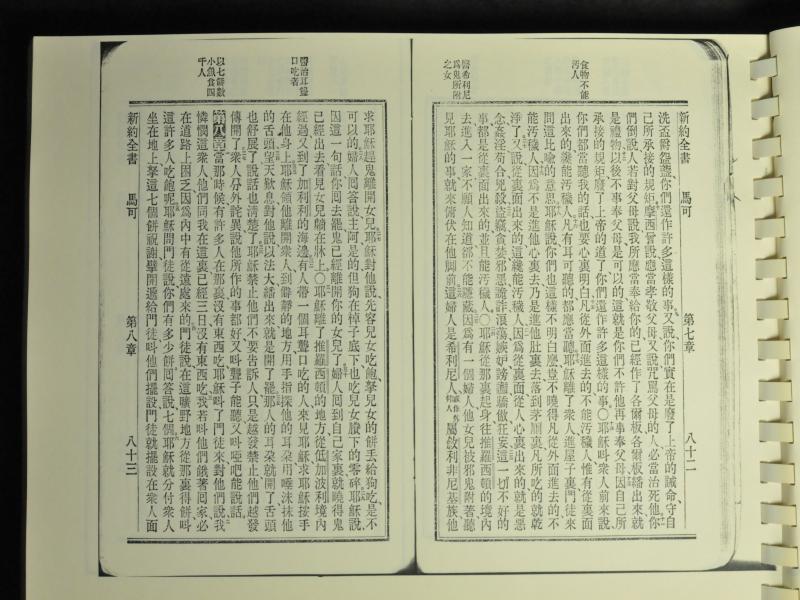 新約全書 馬可 第七章 八十二
食物不能
汚人
醫希利尼
爲鬼所附
之女
洗盃罇盤罐、你們還作許多這樣的事、又說、你們實在是廢了上帝的誡命、守自
己所承接的規矩、摩西曾說、應當孝敬父母、又說、咒罵父母的人、必當治死他、你
們倒說、人若對父母說、我所應當奉給你的、已經作了各爾板、各爾板繙出來、就
是禮物、以後不事奉父母、是可以的、這就是你們不許他再事奉父母、因自己所
承接的規矩、廢了上帝的道了、你們還作許多這樣的事○耶穌叫衆人前來、說、
你們都當聽我的話、也要心裏明白、凡從外面進去的、不能汚穢人、惟有從裏面
出來的、纔能汚穢人、凡有耳可聽的、都應當聽、耶穌離了衆人、進屋子裏、門徒來
問這比喻的意思、耶穌說、你們也這樣不明白麽、豈不曉得凡從外面進去的、不
能汚穢人、因爲不是進他心裏去、乃是進他肚裏去、落到茅厠裏、凡所吃的就乾
淨了、又說、從裏面出來的、這纔能汚穢人、因爲從裏面、從人心裏、出來的、就是惡
念、姦淫、苟合、兇殺、盜竊、貪婪、邪惡、詭詐、淫蕩、嫉妒、謗讟、驕傲、狂妄、這一切不好的
事、都是從裏面出來的、並且能汚穢人○耶穌從那裏起身、往推羅西頓的境內
去、進入一家、不願人知道、卻不能隱藏、因爲有一個婦人、他女兒被邪鬼附著、聽
見耶穌的事、就來俯伏在他脚前、這婦人是希利尼人、屬敘利非尼基族、他
醫治耳聾
口吃者
以七餅數
小魚食四
千人
求耶穌趕鬼離開女兒、耶穌對他說、先容兒女吃飽、拏兒女的餅、丟給狗吃、是不
可以的、婦人回答說、主阿、是的、但狗在棹子底下、也吃兒女賸下的零碎、耶穌說、
因這一句話、你回去罷、鬼已經離開你的女兒了、婦人回到自己家裏、就曉得鬼
已經出去、看見女兒躺在牀上○耶穌離了推羅西頓的地方、從低加波利境內
經過、又到了加利利的海邊、有人帶一個耳聾口吃的人、來見耶穌、求耶穌按手
在他身上、耶穌領他離開衆人、到僻靜的地方、用手指探他的耳朵、用唾沫抹他
的舌頭、望天歎息、對他說、以法大、繙出來、就是開了罷、那人的耳朵就開了、舌頭
也舒展了、說話也清楚了、耶穌禁止他們不要告訴人、只是越發禁止、他們越發
傳開了、衆人分外詫異、說、他所作的事都好、又叫聾子能聽、又叫啞吧能說話、
第八章 當那時候、有許多人在那裏、沒有東西吃、耶穌叫了門徒來、對他們說、我
憐憫這衆人、他們同我在這裏已經三日、沒有東西吃、我若叫他們餓著回家、必
在道路上困乏、因爲內中有從遠處來的、門徒說、在這曠野地方、從那裏得餅、叫
這許多人吃飽呢、耶穌問門徒說、你們有多少餅、回答說、七個、耶穌就分付衆人
坐在地上、拏這七個餅、祝謝擘開、遞給門徒、叫他們擺設、門徒就擺設在衆人面
新約全書 馬可 第八章 八十三